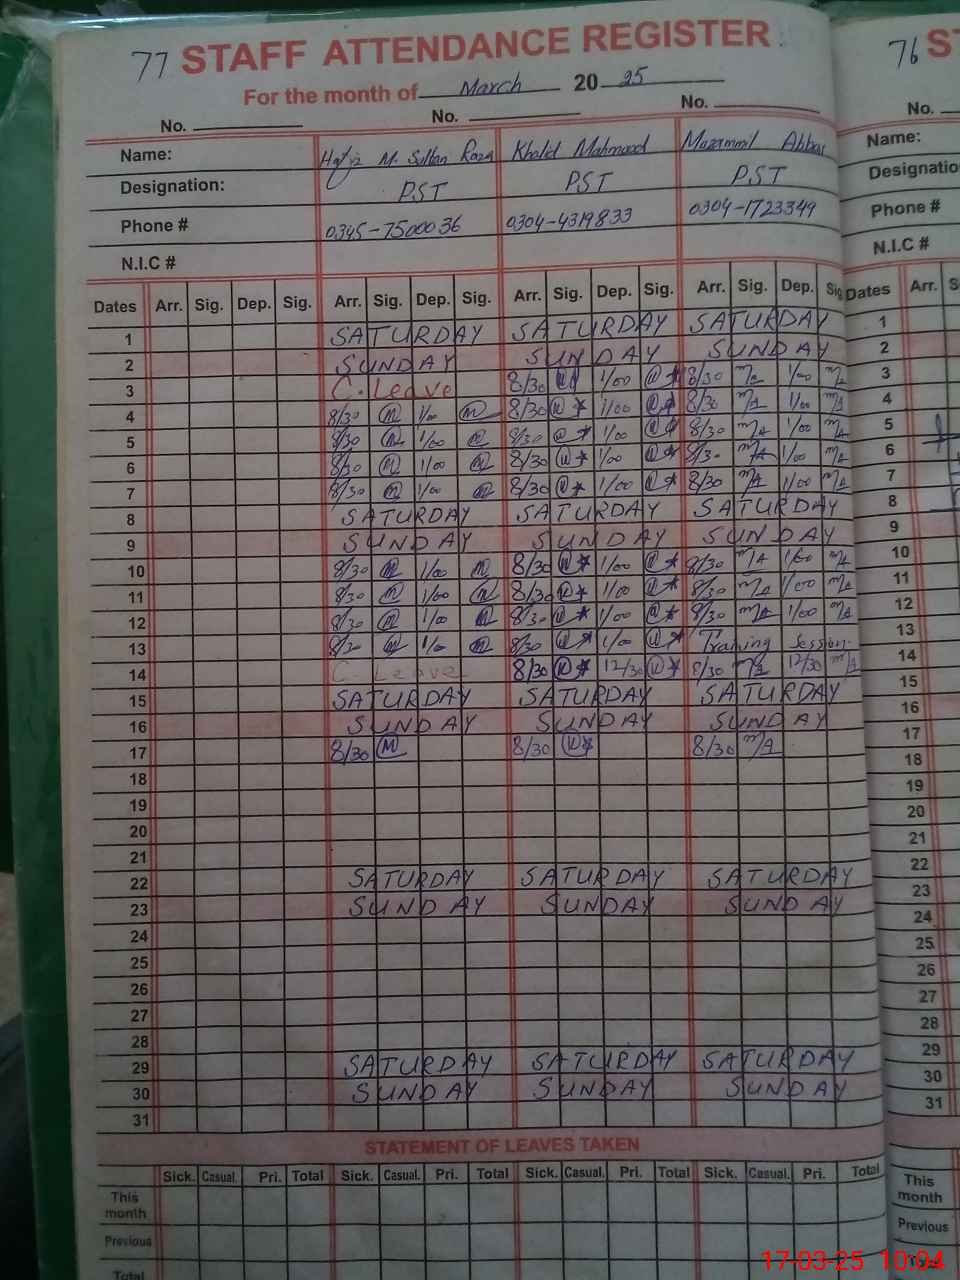 77 STAFF ATTENDANCE REGISTER
For the month of March 20 25
No. No. No.
Name: Hafiz M. Sultan Raza Khalid Mahmood Mozammil Abbas
Designation: PST PST PST
Phone # 0345-7500036 0304-4319833 0304-1723349
N.I.C #
Dates Arr. Sig. Dep. Sig. Arr. Sig. Dep. Sig. Arr. Sig. Dep. Sig. Arr. Sig. Dep. Sig
1 SATURDAY SATURDAY SATURDAY
2 SUNDAY SUNDAY SUNDAY
3 C. Leave 8/30 1/00 8/30 MA 1/00 MA
4 8/30 M 1/00 M 8/30 1/00 8/30 MA 1/00 MA
5 8/30 M 1/00 M 8/30 1/00 8/30 MA 1/00 MA
6 8/30 M 1/00 M 8/30 1/00 8/30 MA 1/00 MA
7 8/30 M 1/00 M 8/30 1/00 8/30 MA 1/00 MA
8 SATURDAY SATURDAY SATURDAY
9 SUNDAY SUNDAY SUNDAY
10 8/30 M 1/00 M 8/30 1/00 8/30 MA 1/00 MA
11 8/30 M 1/00 M 8/30 1/00 8/30 MA 1/00 MA
12 8/30 M 1/00 M 8/30 1/00 8/30 MA 1/00 MA
13 8/30 M 1/00 M 8/30 1/00 Training Session
14 C. Leave 8/30 12/30 8/30 MA 12/30 MA
15 SATURDAY SATURDAY SATURDAY
16 SUNDAY SUNDAY SUNDAY
17 8/30 M 8/30 8/30 MA
18
19
20
21
22 SATURDAY SATURDAY SATURDAY
23 SUNDAY SUNDAY SUNDAY
24
25
26
27
28
29 SATURDAY SATURDAY SATURDAY
30 SUNDAY SUNDAY SUNDAY
31
STATEMENT OF LEAVES TAKEN
Sick. Casual. Pri. Total Sick. Casual. Pri. Total Sick. Casual. Pri. Total Sick. Casual. Pri. Total
This month
Previous
Total
76 ST
No.
Name:
Designatio
Phone #
N.I.C #
Dates Arr. S
1
2
3
4
5
6
7
8
9
10
11
12
13
14
15
16
17
18
19
20
21
22
23
24
25
26
27
28
29
30
31
This month
Previous
Total
17-03-25 10:04